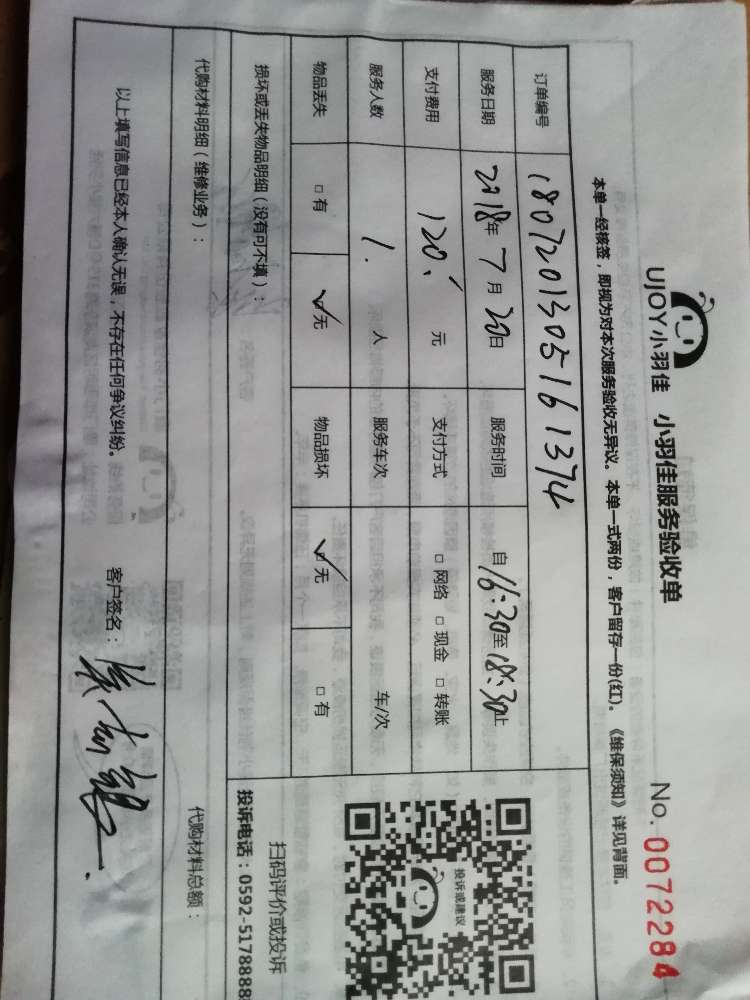 UJOY小羽佳 小羽佳服务验收单 No. 0072284
本单一经核签，即视为对本次服务验收无异议。本单一式两份，客户留存一份(红)。《维保须知》详见背面。
订单编号 1807201305161374
服务日期 2018年7月20日 服务时间 自16:30至18:30止
支付费用 120. 元 支付方式 □网络 □现金 □转账
服务人数 1. 人 服务车次 车/次
物品丢失 □有 ☑无 物品损坏 ☑无 □有
损坏或丢失物品明细（没有可不填）：
投诉或建议
扫码评价或投诉
投诉电话：0592-5178888
代购材料明细（维修业务）： 代购材料总额：
以上填写信息已经本人确认无误，不存在任何争议纠纷。 客户签名：